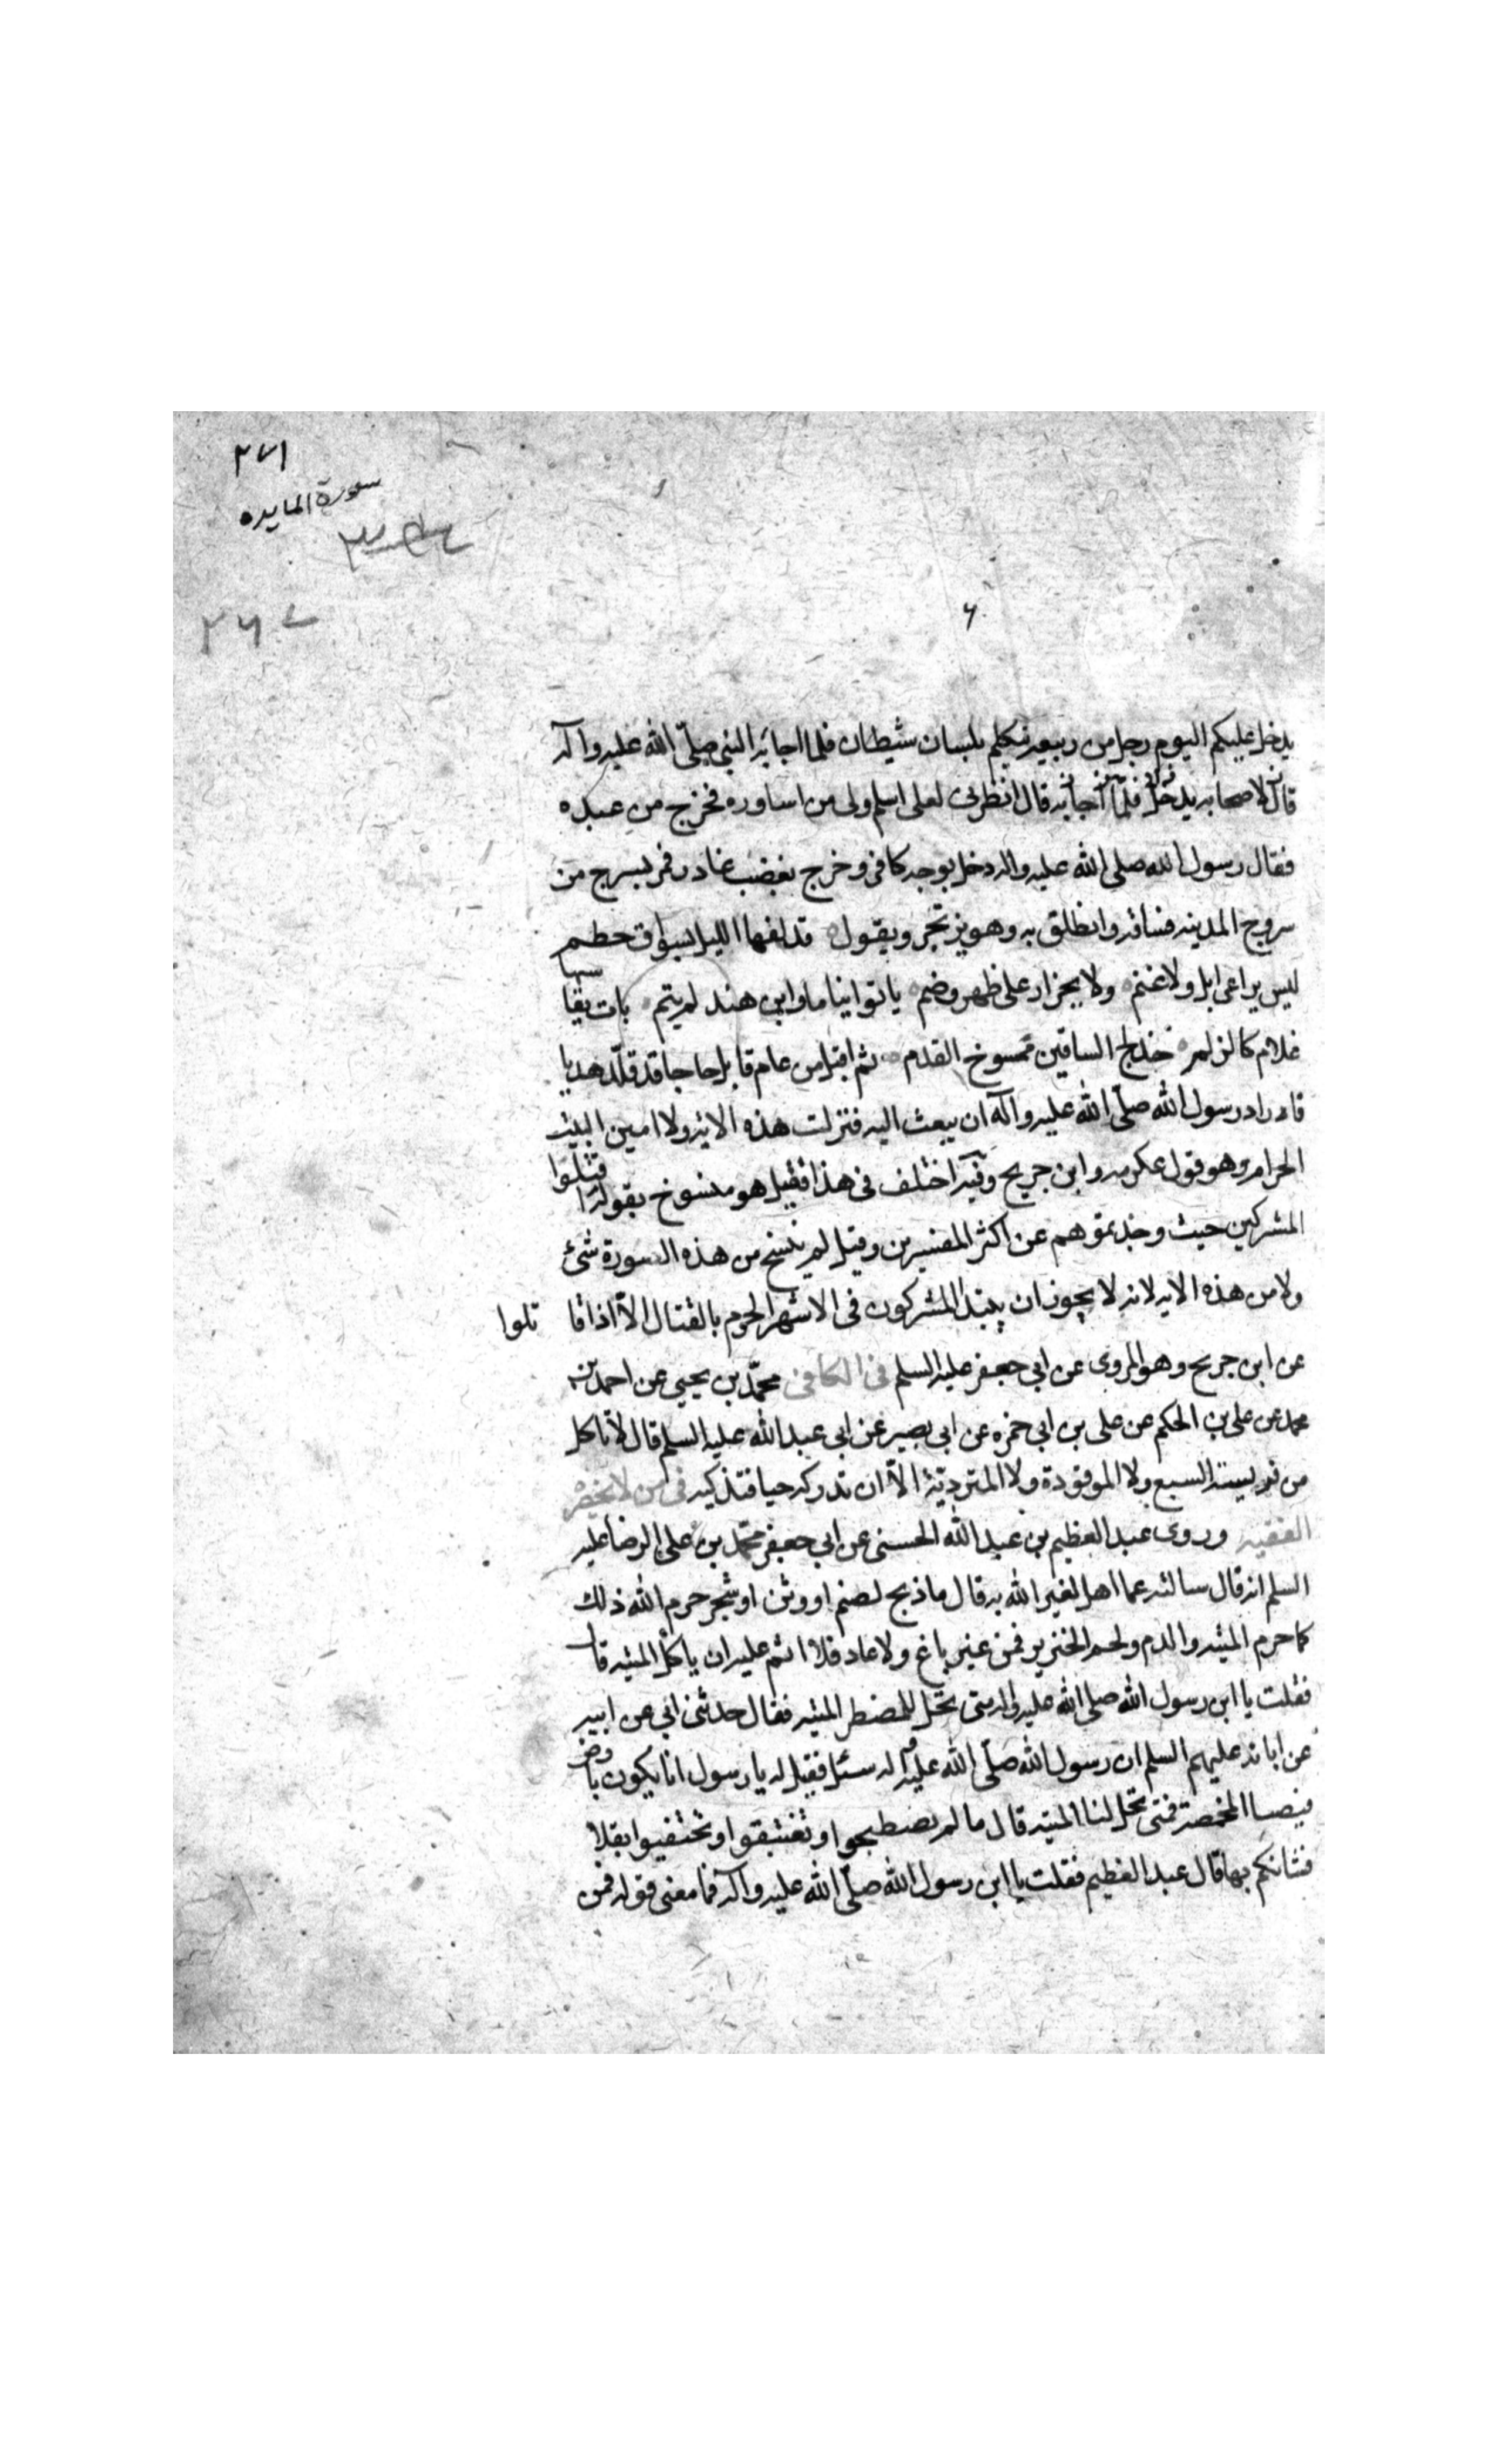 ٢٧١
سورة المايده
٢٦٧
يدخل عليكم اليوم رجل من ربيعه يتكلم بلسان شيطان فلما اجابه النبي صلّى الله عليه واله
قال لاصحابه يدخل فلمّا اجابه قال انظرنى لعلى اسلم ولى من اساوره فخرج من عنده
فقال رسول الله صلى الله عليه واله دخل بوجه كافر وخرج بغضب غادر فمر بسرح من
سروح المدينه فساقه وانطلق به وهو يرتجز ويقول قد لفها الليل بسواق حطم
ليس براعى ابل ولا غنم ولا بجزار على ظهر وضم باتوا نياما وابن هند لم ينم بات يقاسيها
غلام كالزلم خدلج الساقين ممسوخ القدم ثم اقبل من عام قابل حاجا قد قلّد هديا
فاراد رسول الله صلّى الله عليه واله ان يبعث اليه فنزلت هذه الايه ولا امين البيت
الحرام وهو قول عكرمه وابن جريح وفيه اختلف فى هذا فقيل هو منسوخ بقوله اقتلوا
المشركين حيث وجدتموهم عن اكثر المفسرين وقيل لم ينسخ من هذه السورة شئ
ولا من هذه الايه لانه لا يجوز ان يبتدا المشركون فى الاشهر الحرم بالقتال الّا اذا قا تلوا
عن ابن جريح وهو المروى عن ابى جعفر عليه السلم فى الكافى محمّد بن يحيى عن احمد بن
محمد عن على بن الحكم عن على بن ابى حمزه عن ابى بصير عن ابى عبد الله عليه السلم قال لا تاكل
من فريسة السبع ولا الموقوذة ولا المتردية الّا ان تدركه حيا فتذكيه فى من لا يحضره
الفقيه وروى عبد العظيم بن عبد الله الحسنى عن ابى جعفر محمّد بن على الرضا عليه
السلم انه قال سالته عما اهل لغير الله به قال ما ذبح لصنم او وثن او شجر حرم الله ذلك
كما حرم الميته والدم ولحم الخنزير فمن غير باغ ولا عاد فلا اثم عليه ان ياكل الميته قال
فقلت يا ابن رسول الله صلى الله عليه واله متى تحل للمضطر الميته فقال حدثنى ابى عن ابيه
عن ابائه عليهم السلم ان رسول الله صلّى الله عليه واله سئل فقيل له يا رسول انا نكون بارض
فيصيبنا المخمصة فمتى تحل لنا الميته قال ما لم تصطبحوا او تغتبقوا او تحتفيوا بقلا
فشانكم بها قال عبد العظيم فقلت يا ابن رسول الله صلّى الله عليه واله فما معنى قوله فمن